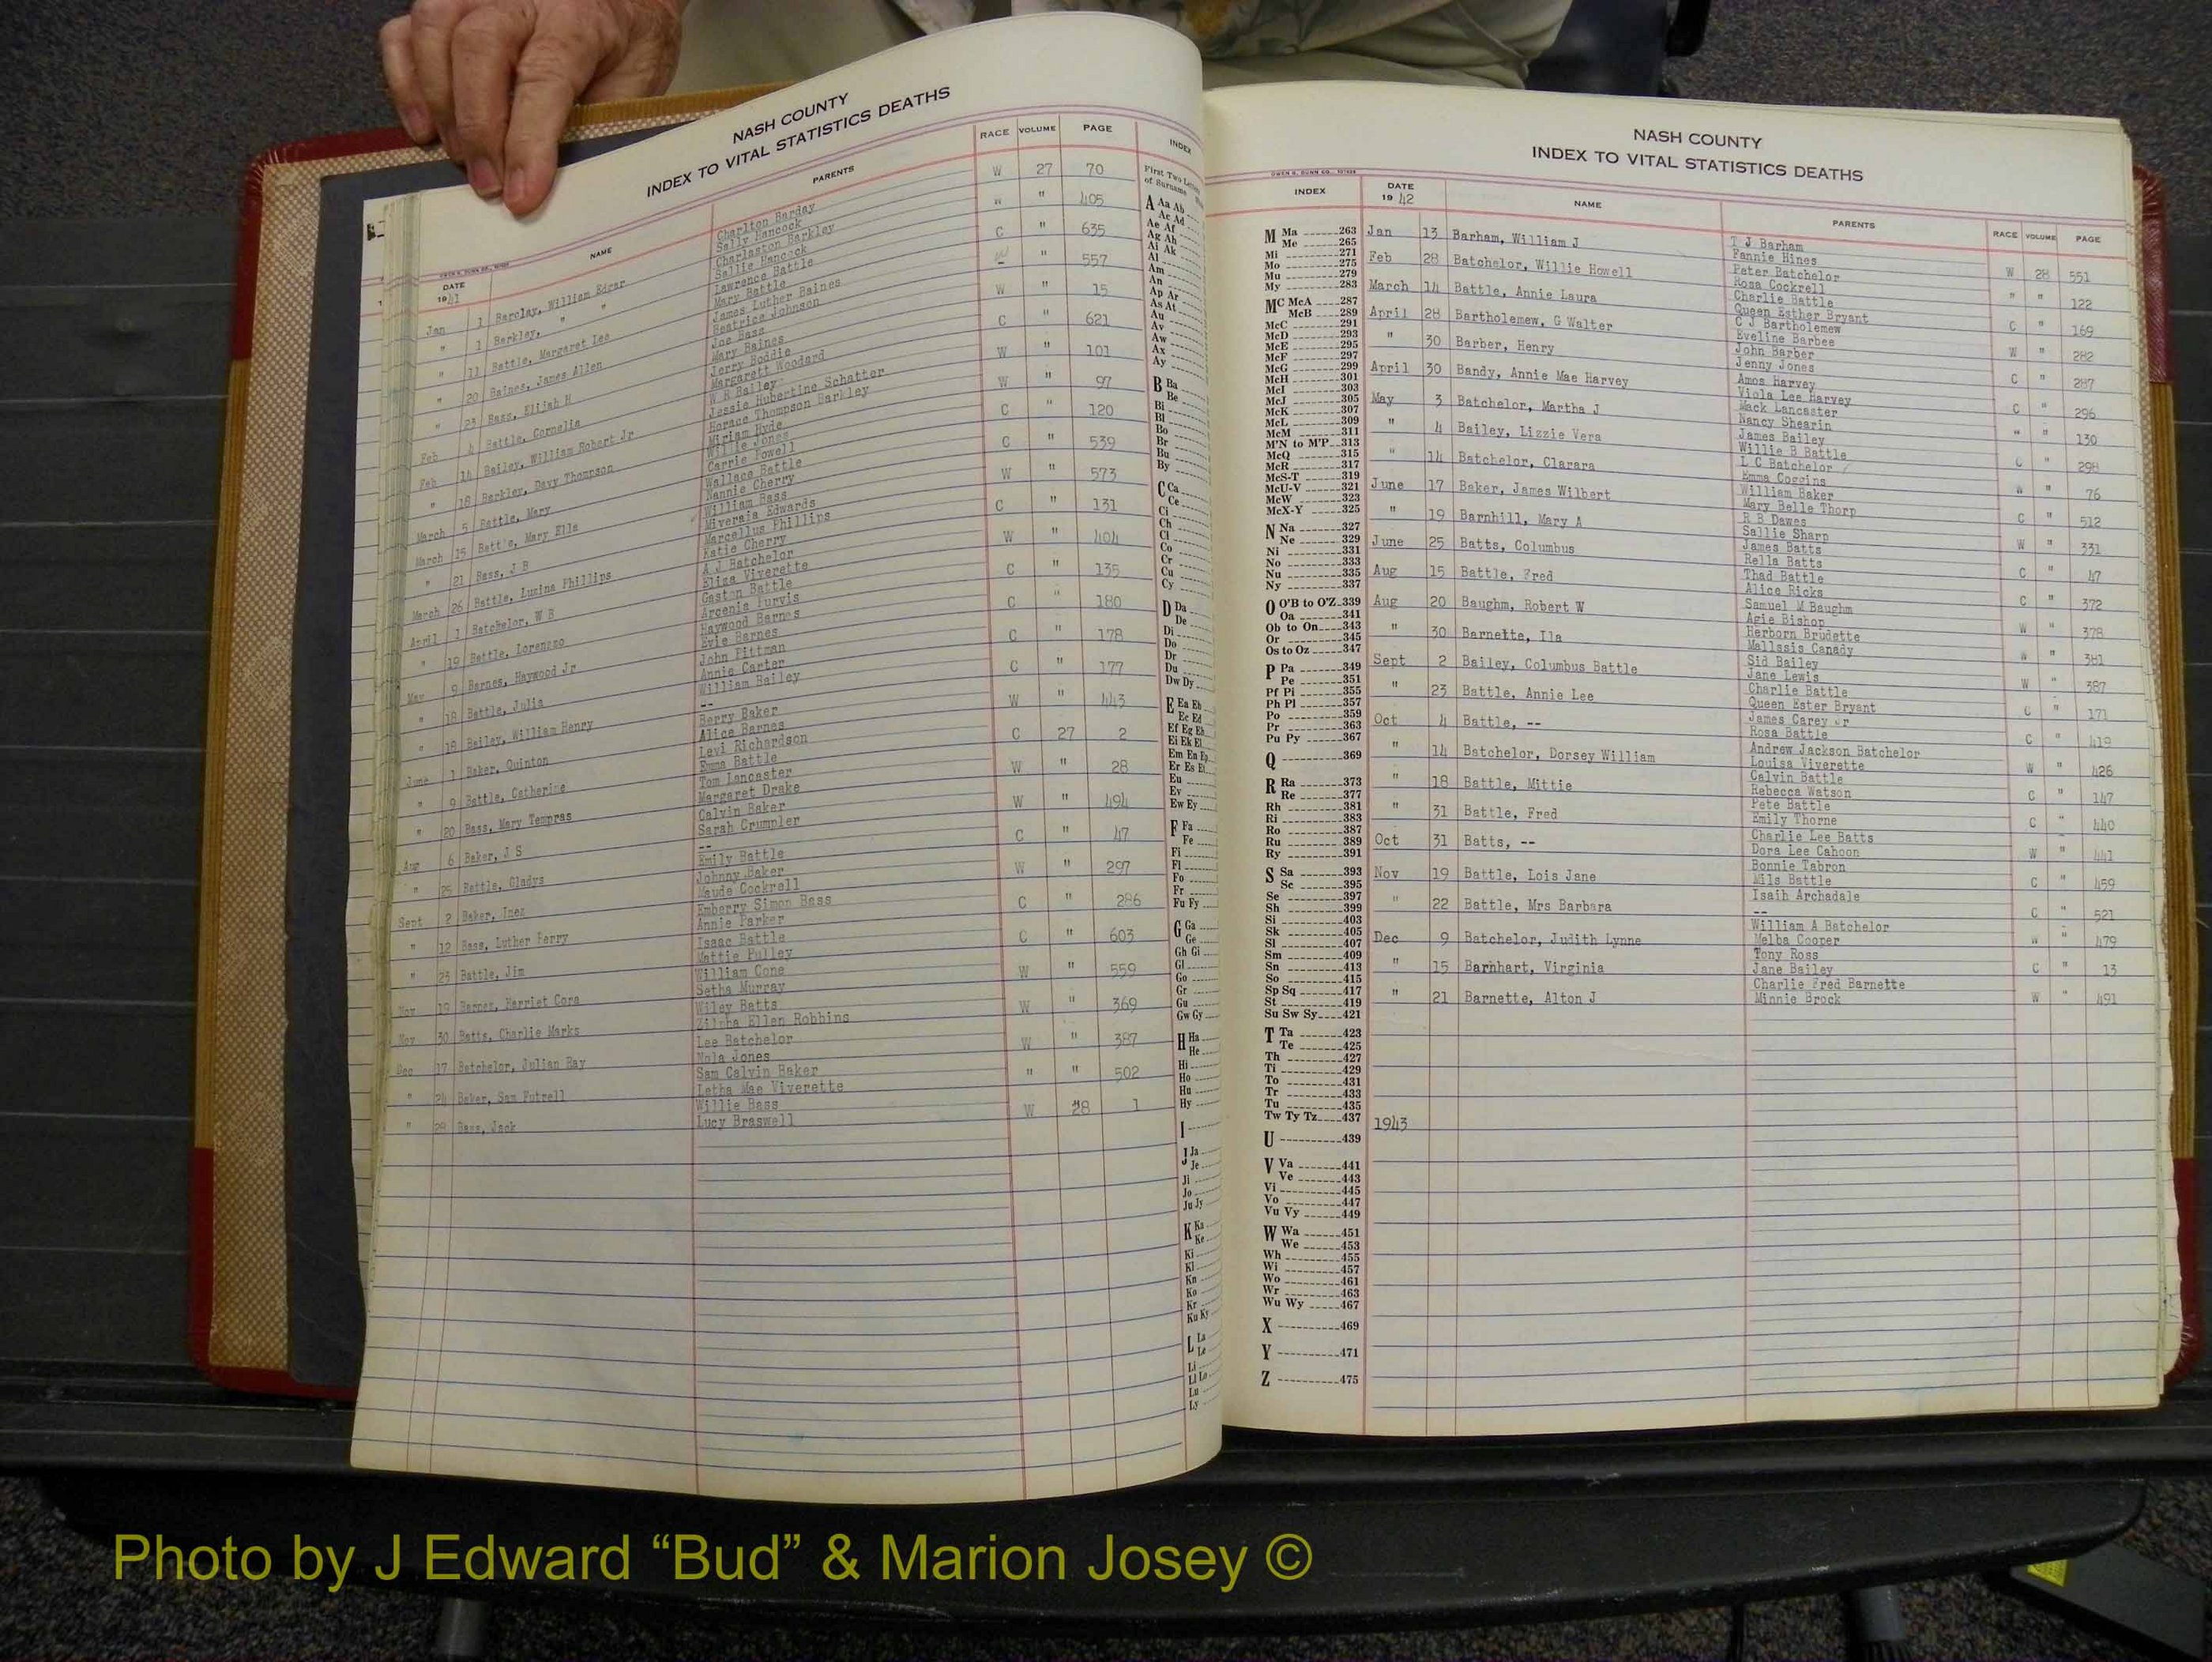 NASH COUNTY
INDEX TO VITAL STATISTICS DEATHS
DATE 1941 NAME PARENTS RACE VOLUME PAGE INDEX
Jan 1 Barclay, William Edgar Charlton Barday W 27 70
Sally Hancock
" 1 Barkley, " " Charlaston Barkley W " 405
Sallie Hancock
" 11 Battle, Margaret Lee Lawrence Battle C " 635
Mary Battle
" 20 Baines, James Allen James Luther Baines " 557
Beatrice Johnson
" 23 Bass, Elijah H Joe Bass W " 15
Mary Baines
Feb 4 Battle, Cornelia Jerry Boddie C " 621
Margarett Woodard
Feb 14 Bailey, William Robert Jr W R Bailey W " 101
Jessie Hubertine Schatter
" 18 Barkley, Davy Thompson Horace Thompson Barkley W " 97
Miriam Hyde
March 5 Battle, Mary Willie Jones C " 120
Carrie Powell
March 15 Battle, Mary Ella Wallace Battle C " 539
Nannie Cherry
" 21 Bass, J B William Bass W " 573
Miverais Edwards
March 26 Battle, Lumina Phillips Marcellus Phillips C " 131
Katie Cherry
April 1 Batchelor, W B A J Batchelor W " 404
Eliza Viverette
" 19 Battle, Lorenzzo Gaston Battle C " 135
Arcenis Purvis
May 9 Barnes, Haywood Jr Haywood Barnes C " 180
Evie Barnes
" 18 Battle, Julia John Pittman C " 178
Annie Carter
" 18 Bailey, William Henry William Bailey C " 177
--
June 1 Baker, Quinton Berry Baker W " 443
Alice Barnes
" 9 Battle, Catherine Levi Richardson C 27 2
Emma Battle
" 20 Bass, Mary Tempras Tom Lancaster W " 28
Margaret Drake
Aug 6 Baker, J S Calvin Baker W " 494
Sarah Crumpler
" 25 Battle, Gladys -- C " 47
Emily Battle
Sept 2 Baker, Inez Johnny Baker W " 297
Maude Cockrell
" 12 Bass, Luther Perry Emberry Simon Bass C " 286
Annie Parker
" 23 Battle, Jim Isaac Battle C " 603
Mattie Pulley
Nov 19 Barnes, Harriet Cora William Cone W " 559
Setha Murray
Nov 30 Batts, Charlie Marks Wiley Batts W " 369
Zilpha Ellen Robbins
Dec 17 Batchelor, Julian Ray Lee Batchelor W " 387
Nola Jones
" 24 Baker, Sam Futrell Sam Calvin Baker " " 502
Letha Mae Viverette
" 29 Bass, Jack Willie Bass W 28 1
Lucy Braswell
First Two Letters
of Surname
A Aa Ab
Ac Ad
Ae Af
Ag Ah
Ai Ak
Al
Am
An
Ap Ar
As At
Au
Av
Aw
Ax
Ay
B Ba
Be
Bi
Bl
Bo
Br
Bu
By
C Ca
Ce
Ci
Ch
Cl
Co
Cr
Cu
Cy
D Da
De
Di
Do
Dr
Du
Dw Dy
E Ea Eb
Ec Ed
Ef Eg Eh
Ei Ek El
Em En Ep
Er Es Et
Eu
Ev
Ew Ey
F Fa
Fe
Fi
Fl
Fo
Fr
Fu Fy
G Ga
Ge
Gh Gi
Gl
Go
Gr
Gu
Gw Gy
H Ha
He
Hi
Ho
Hu
Hy
I
J Ja
Je
Ji
Jo
Ju Jy
K Ka
Ke
Ki
Kl
Kn
Ko
Kr
Ku Ky
L La
Le
Li
Ll Lo
Lu
Ly
NASH COUNTY
INDEX TO VITAL STATISTICS DEATHS
OWEN G. DUNN CO.
INDEX DATE 1942 NAME PARENTS RACE VOLUME PAGE
M Ma 263
Me 265
Mi 271
Mo 275
Mu 279
My 283
MC McA 287
McB 289
McC 291
McD 293
McE 295
McF 297
McG 299
McH 301
McI 303
McJ 305
McK 307
McL 309
McM 311
M'N to M'P 313
McQ 315
McR 317
McS-T 319
McU-V 321
McW 323
McX-Y 325
N Na 327
Ne 329
Ni 331
No 333
Nu 335
Ny 337
O O'B to O'Z 339
Oa 341
Ob to On 343
Or 345
Os to Oz 347
P Pa 349
Pe 351
Pf Pi 355
Ph Pl 357
Po 359
Pr 363
Pu Py 367
Q 369
R Ra 373
Re 377
Rh 381
Ri 383
Ro 387
Ru 389
Ry 391
S Sa 393
Sc 395
Se 397
Sh 399
Si 403
Sk 405
Sl 407
Sm 409
Sn 413
So 415
Sp Sq 417
St 419
Su Sw Sy 421
T Ta 423
Te 425
Th 427
Ti 429
To 431
Tr 433
Tu 435
Tw Ty Tz 437
U 439
V Va 441
Ve 443
Vi 445
Vo 447
Vu Vy 449
W Wa 451
We 453
Wh 455
Wi 457
Wo 461
Wr 463
Wu Wy 467
X 469
Y 471
Z 475
Jan 13 Barham, William J T J Barham W 28 551
Fannie Hines
Feb 28 Batchelor, Willie Howell Peter Batchelor " " 122
Rosa Cockrell
March 14 Battle, Annie Laura Charlie Battle C " 169
Queen Esther Bryant
April 28 Bartholemew, G Walter C J Bartholemew W " 282
Eveline Barbee
" 30 Barber, Henry John Barber C " 287
Jenny Jones
April 30 Bandy, Annie Mae Harvey Amos Harvey C " 296
Viola Lee Harvey
May 3 Batchelor, Martha J Mack Lancaster " " 130
Nancy Shearin
" 4 Bailey, Lizzie Vera James Bailey C " 298
Willie B Battle
" 14 Batchelor, Clarara L C Batchelor W " 76
Emma Coggins
June 17 Baker, James Wilbert William Baker C " 512
Mary Belle Thorp
" 19 Barnhill, Mary A R B Dawes W " 331
Sallie Sharp
June 25 Batts, Columbus James Batts C " 47
Rella Batts
Aug 15 Battle, Fred Thad Battle C " 372
Alice Ricks
Aug 20 Baughm, Robert W Samuel M Baughm W " 378
Agie Bishop
" 30 Barnette, Ila Herborn Brudette W " 381
Mallssis Canady
Sept 2 Bailey, Columbus Battle Sid Bailey W " 387
Jane Lewis
" 23 Battle, Annie Lee Charlie Battle C " 171
Queen Ester Bryant
Oct 4 Battle, -- James Carey Jr C " 419
Rosa Battle
" 14 Batchelor, Dorsey William Andrew Jackson Batchelor W " 426
Louisa Viverette
" 18 Battle, Mittie Calvin Battle C " 147
Rebecca Watson
" 31 Battle, Fred Pete Battle C " 440
Emily Thorne
Oct 31 Batts, -- Charlie Lee Batts W " 441
Dora Lee Cahoon
Nov 19 Battle, Lois Jane Bonnie Tabron C " 459
Nils Battle
" 22 Battle, Mrs Barbara Isaih Archadale C " 521
--
Dec 9 Batchelor, Judith Lynne William A Batchelor W " 479
Melba Cooper
" 15 Barnhart, Virginia Tony Ross C " 13
Jane Bailey
" 21 Barnette, Alton J Charlie Fred Barnette W " 491
Minnie Brock
1943
Photo by J Edward “Bud” & Marion Josey ©